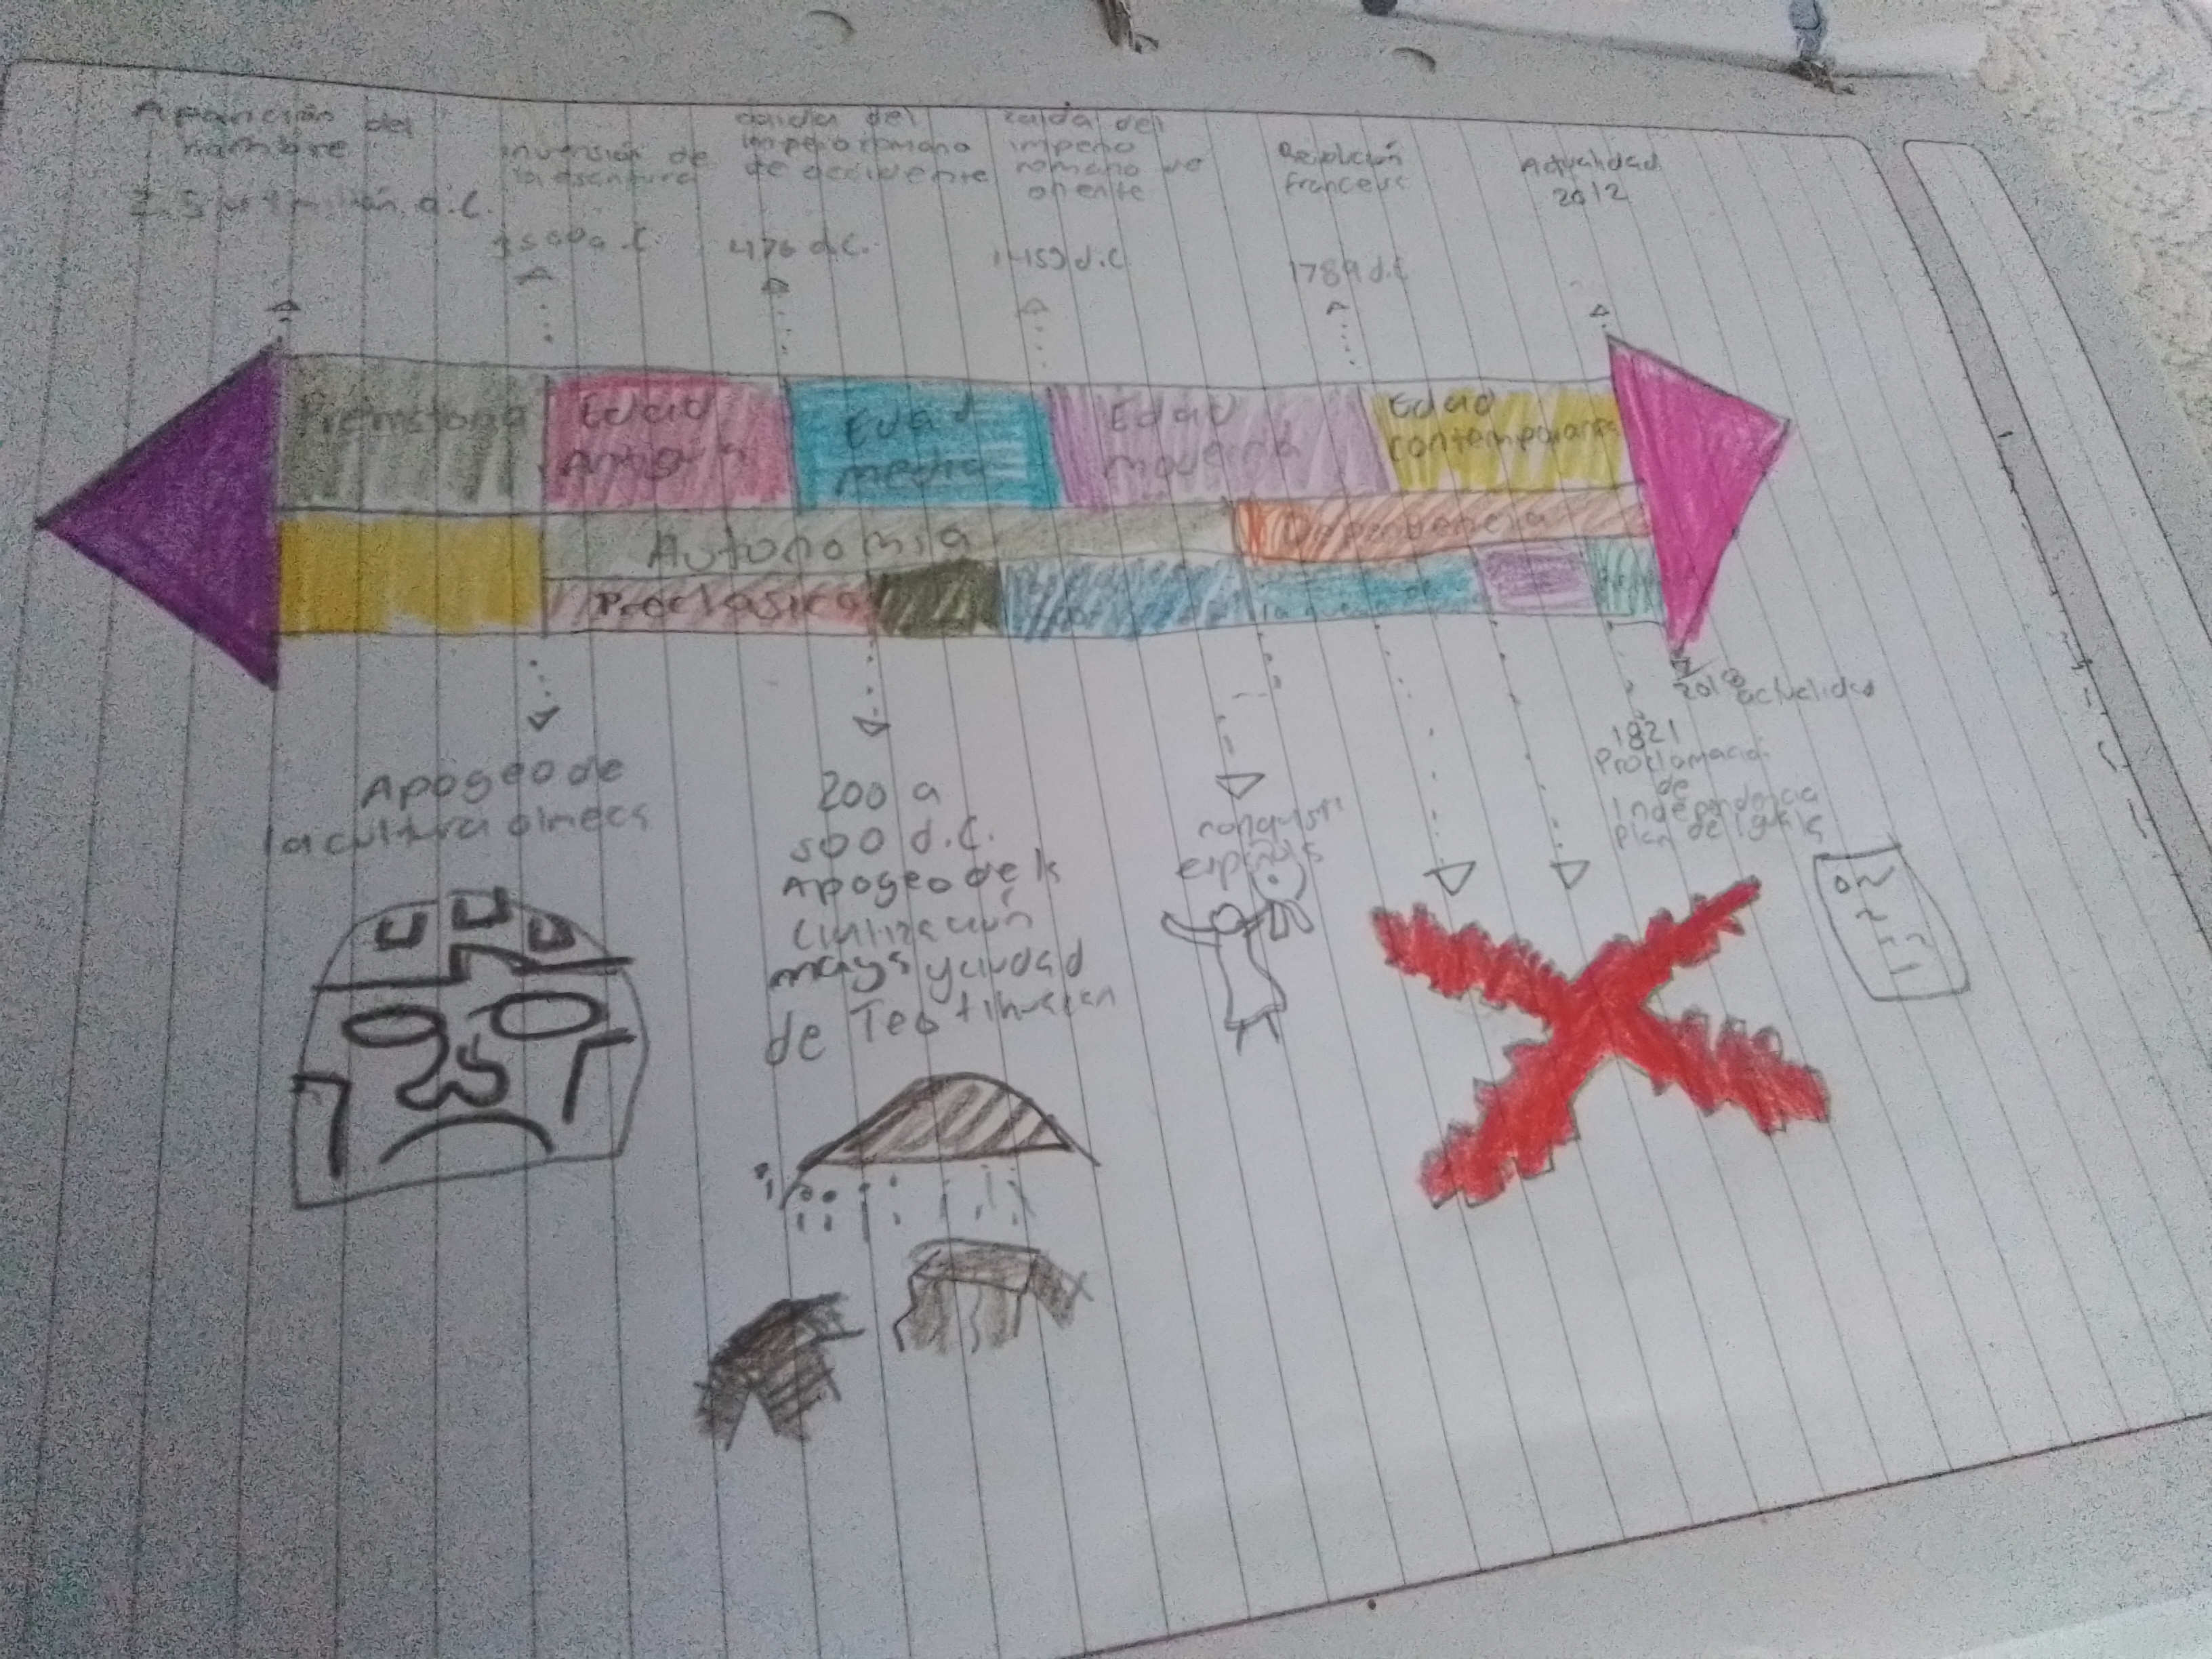 Aparición del
hombre
2.5 millón a.C.
invensión de
la escritura
3500 a.C.
caida del
imperio romano
de occidente
476 d.C.
caida del
imperio
romano de
oriente
1453 d.C.
Revolución
francesa
1789 d.C
Actualidad
2012
Prehistoria
Edad
Antigua
Edad
media
Edad
moderna
Edad
contemporanea
Autonomia
Dependencia
Preclasico
Apogeo de
la cultura olmeca
200 a
500 d.C.
Apogeo de la
civilización
maya y ciudad
de Teotihuacan
conquista
española
1821
Proclamación
de
Independencia
Plan de Iguala
2018
actualidad